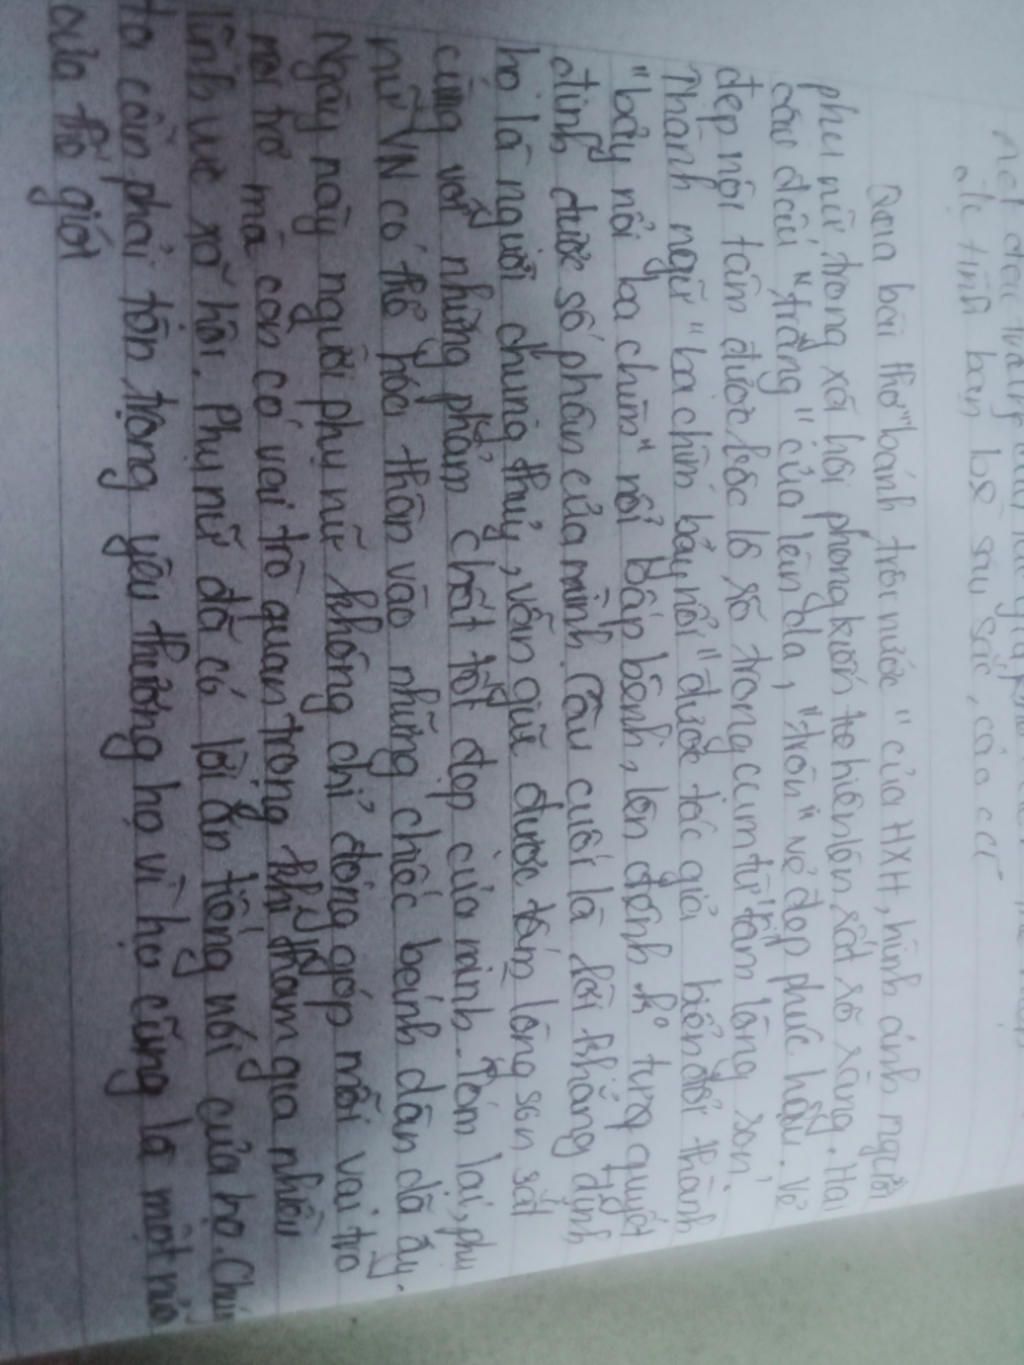 nét đặc trưng
tình bạn bè sâu sắc, cao cả
Qua bài thơ "bánh trôi nước" của HXH, hình ảnh người
phụ nữ trong xã hội phong kiến to hiện lên rất rõ ràng. Hai
câu đầu "trắng" của làn da, "tròn" vẻ đẹp phúc hậu. Vẻ
đẹp nội tâm được bộc lộ rõ trong cụm từ "tấm lòng son".
Thành ngữ "ba chìm bảy nổi" được tác giả biến đổi thành
"bảy nổi ba chìm" nổi bấp bênh, lên đênh ko tự quyết
định được số phận của mình. Câu cuối là lời khẳng định
họ là người chung thuỷ, vẫn giữ được tấm lòng son sắt
cùng với những phẩm chất tốt đẹp của mình. Tóm lại, phụ
nữ VN có thể hóa thân vào những chiếc bánh dân dã ấy.
Ngày nay người phụ nữ không chỉ đóng góp mỗi vai trò
nội trợ mà còn có vai trò quan trọng khi tham gia nhiều
lĩnh vực xã hội. Phụ nữ đã có lời ăn tiếng nói của họ. Chúng
ta cần phải tôn trọng yêu thương họ vì họ cũng là một nửa
của thế giới